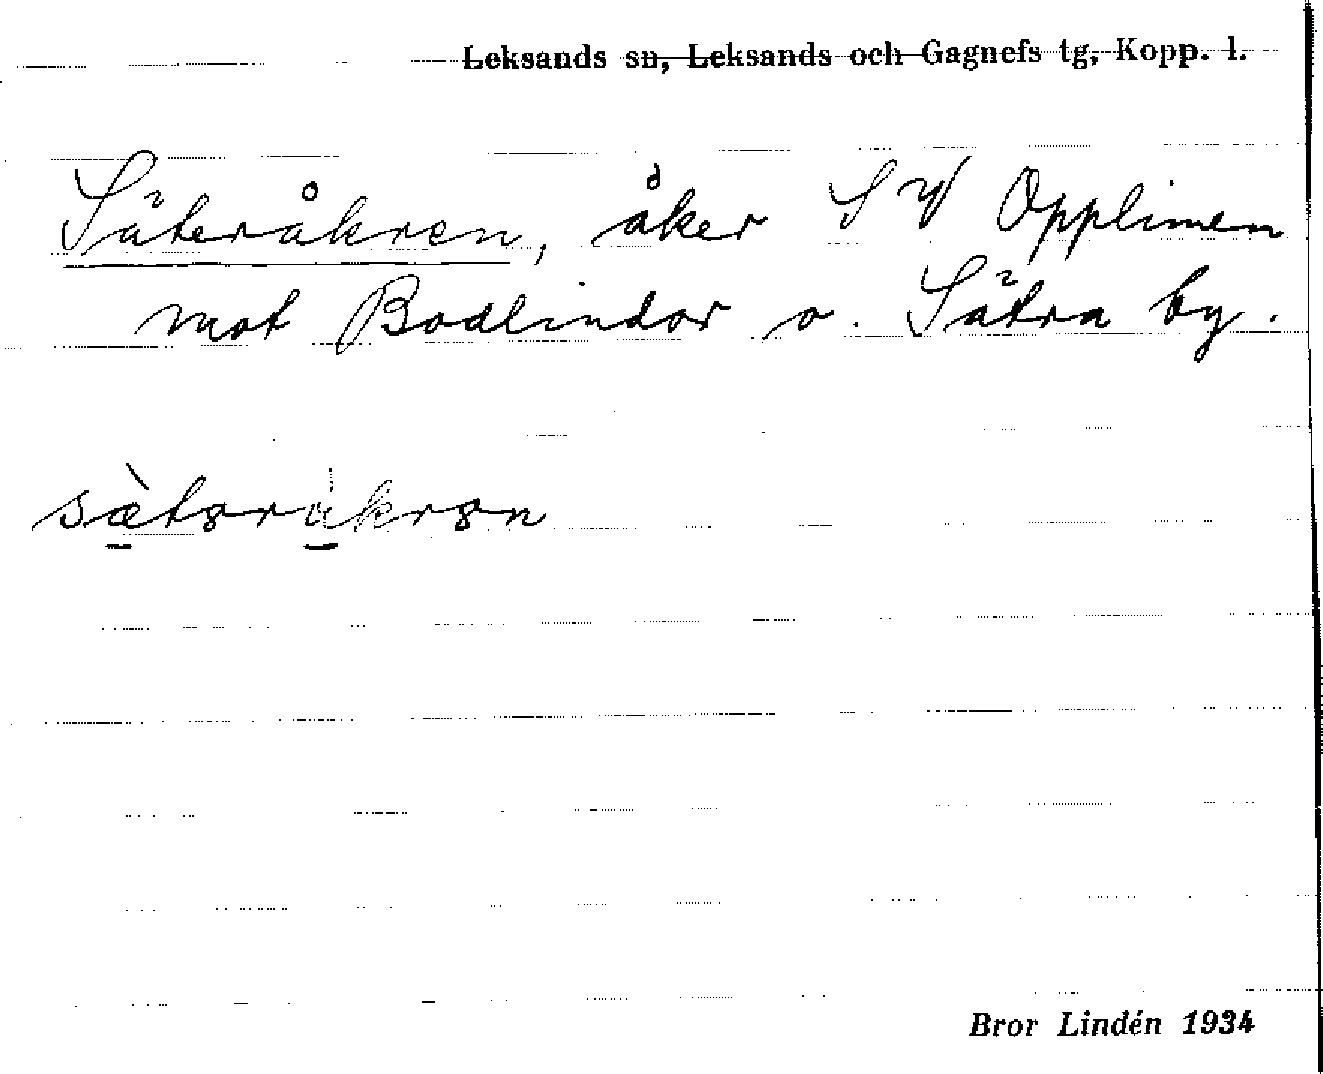 Leksands sn, Leksands och Gagnefs tg, Kopp. l.
Säteråkren, åker SV Opplimen
mot Bodlindor o. Sätra by.
sæ̀təråkrən
Bror Lindén 1934